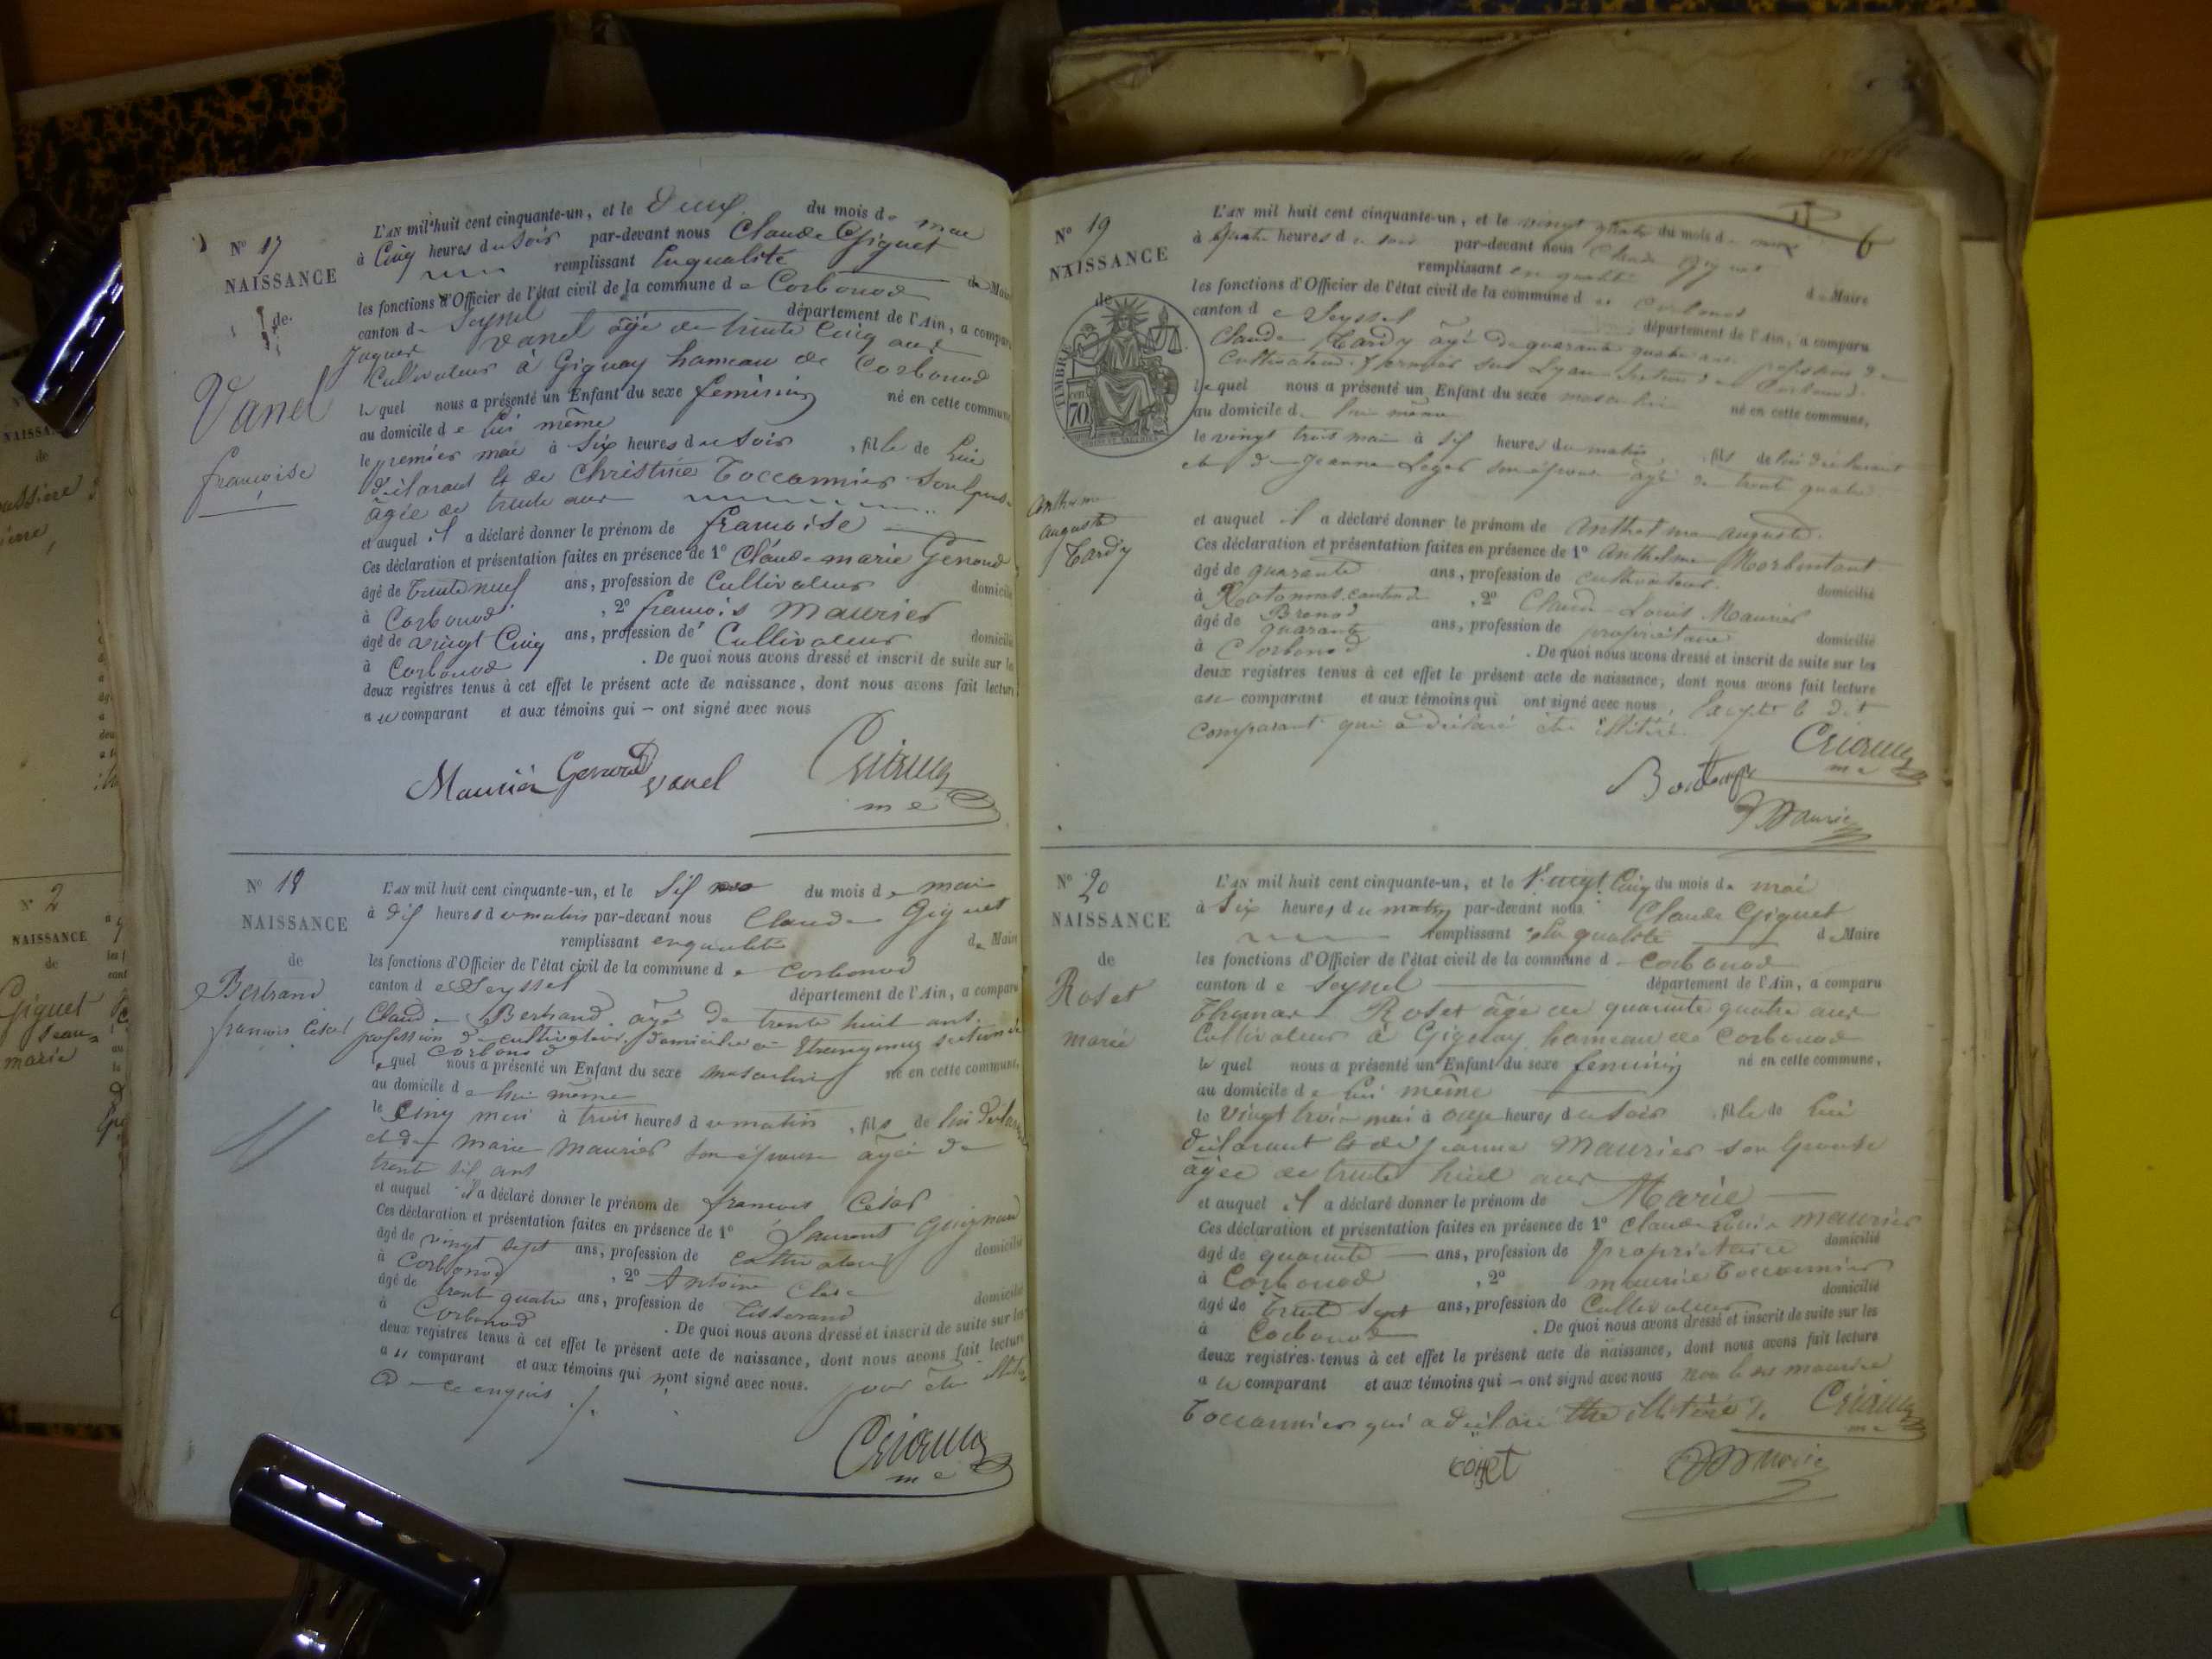 N° 17
NAISSANCE
de
Vanel
françoise
L'AN mil huit cent cinquante-un, et le Deux du mois de mai
à Cinq heures du Soir par-devant nous Claude Giguet
remplissant En qualité de Maire
les fonctions d'Officier de l'état civil de la commune de Corbonod
canton de Seyssel département de l'Ain, a comparu
Jaques Vanel âgé de trente Cinq ans
Cultivateur à Gignay hameau de Corbonod
lequel nous a présenté un Enfant du sexe feminin né en cette commune
au domicile de lui même
le premier mai à Six heures du Soir, fille de Lui
déclarant et de Christine Toccannier Son Epouse
âgée de trente ans
et auquel il a déclaré donner le prénom de françoise
Ces déclaration et présentation faites en présence de 1° Claude-marie Genoud
âgé de trente neuf ans, profession de Cultivateur domicilié
à Corbonod, 2° françois Maurier
âgé de vingt Cinq ans, profession de Cultivateur domicilié
à Corbonod. De quoi nous avons dressé et inscrit de suite sur les
deux registres tenus à cet effet le présent acte de naissance, dont nous avons fait lecture
au comparant et aux témoins qui ont signé avec nous
Maurier Genoud Vanel
me
N° 18
NAISSANCE
de
Bertrand
françois César
L'AN mil huit cent cinquante-un, et le Six du mois de mai
à dix heures du matin par-devant nous Claude Giguet
remplissant en qualité de Maire
les fonctions d'Officier de l'état civil de la commune de Corbonod
canton de Seyssel département de l'Ain, a comparu
Claude Bertrand âgé de trente huit ans
profession de cultivateur, domicilié à section de
Corbonod
lequel nous a présenté un Enfant du sexe masculin né en cette commune,
au domicile de lui même
le Cinq mai à trois heures du matin, fils de lui déclarant
et de marie maurier son épouse âgée de
trente six ans
et auquel il a déclaré donner le prénom de françois César
Ces déclaration et présentation faites en présence de 1° Laurent
âgé de vingt sept ans, profession de cultivateur domicilié
à Corbonod, 2° Antoine
âgé de trente quatre ans, profession de tisserand domicilié
à Corbonod. De quoi nous avons dressé et inscrit de suite sur les
deux registres tenus à cet effet le présent acte de naissance, dont nous avons fait lecture
au comparant et aux témoins qui n'ont signé avec nous. pour être
de ce enquis
me
N° 19
NAISSANCE
de
TIMBRE
70
anthelme
auguste
Tardy
6
L'AN mil huit cent cinquante-un, et le vingt quatre du mois de mai
à quatre heures du soir par-devant nous Claude Giguet
remplissant en qualité de Maire
les fonctions d'Officier de l'état civil de la commune de Corbonod
canton de Seyssel département de l'Ain, a comparu
Claude Tardy âgé de quarante quatre ans profession de
Cultivateur fermier sur Lyan section de Corbonod.
lequel nous a présenté un Enfant du sexe masculin né en cette commune,
au domicile de lui même
le vingt trois mai à six heures du matin, fils de lui déclarant
et de Jeanne Leger son épouse âgée de trente quatre
et auquel il a déclaré donner le prénom de Anthelme auguste.
Ces déclaration et présentation faites en présence de 1° Anthelme
âgé de quarante ans, profession de cultivateur. domicilié
à canton de, 2° Claude-Louis Maurier
Brenod
âgé de quarante ans, profession de propriétaire domicilié
à Corbonod. De quoi nous avons dressé et inscrit de suite sur les
deux registres tenus à cet effet le présent acte de naissance, dont nous avons fait lecture
au comparant et aux témoins qui ont signé avec nous, excepté le dit
comparant qui a déclaré être illitéré
me
Maurier
N° 20
NAISSANCE
de
Roset
marie
L'AN mil huit cent cinquante-un, et le Vingt Cinq du mois de mai
à Six heures du matin par-devant nous Claude Giguet
remplissant En qualité de Maire
les fonctions d'Officier de l'état civil de la commune de Corbonod
canton de Seyssel département de l'Ain, a comparu
Thomas Roset âgé de quarante quatre ans
Cultivateur à Gignay hameau de Corbonod
lequel nous a présenté un Enfant du sexe feminin né en cette commune,
au domicile de Lui même
le Vingt trois mai à onze heures du Soir, fille de Lui
déclarant et de jeanne Maurier son Epouse
âgée de trente huit ans
et auquel il a déclaré donner le prénom de Marie
Ces déclaration et présentation faites en présence de 1° Claude Louis maurier
âgé de quarante ans, profession de propriétaire domicilié
à Corbonod, 2° maurice Toccannier
âgé de trente Sept ans, profession de Cultivateur domicilié
à Corbonod. De quoi nous avons dressé et inscrit de suite sur les
deux registres tenus à cet effet le présent acte de naissance, dont nous avons fait lecture
au comparant et aux témoins qui ont signé avec nous non le sr maurice
Toccannier qui a déclaré être illitéré
me
Maurier
N° 2
NAISSANCE
de
Giguet
Jean-
marie